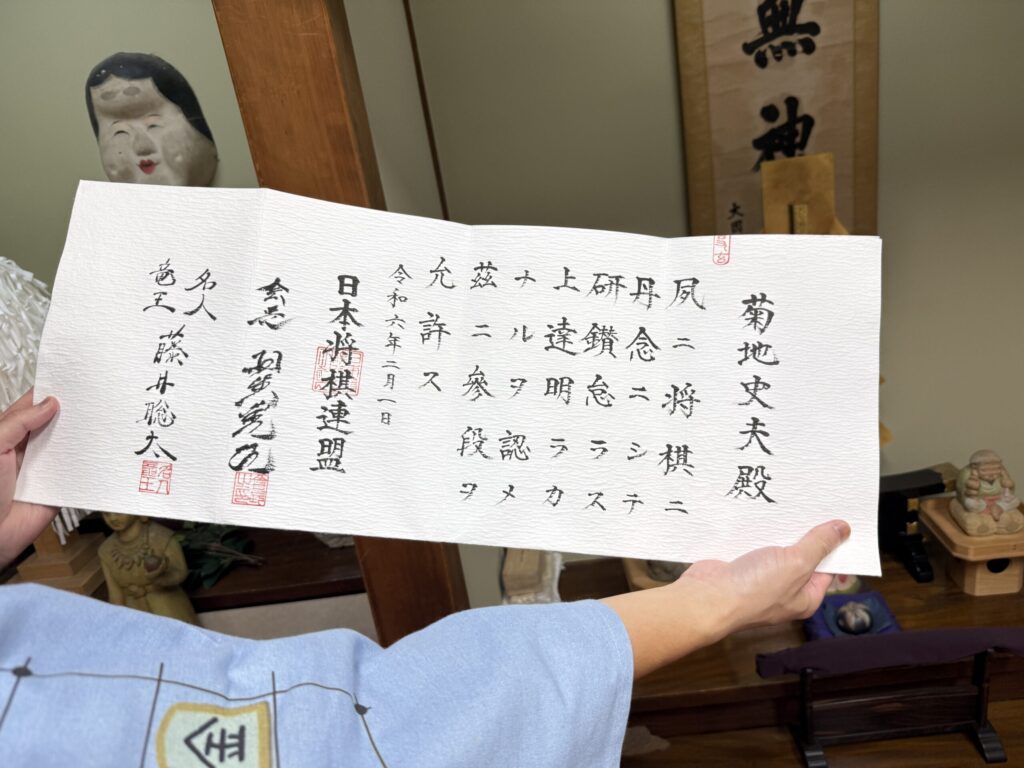 無神
菊地史夫殿
夙ニ将棋ニ
丹念ニシテ
研鑽怠ラス
上達明ラカ
ナルヲ認メ
茲ニ參段ヲ
允許ス
令和六年二月一日
日本将棋連盟
会長 羽生善治
名人
竜王 藤井聡太